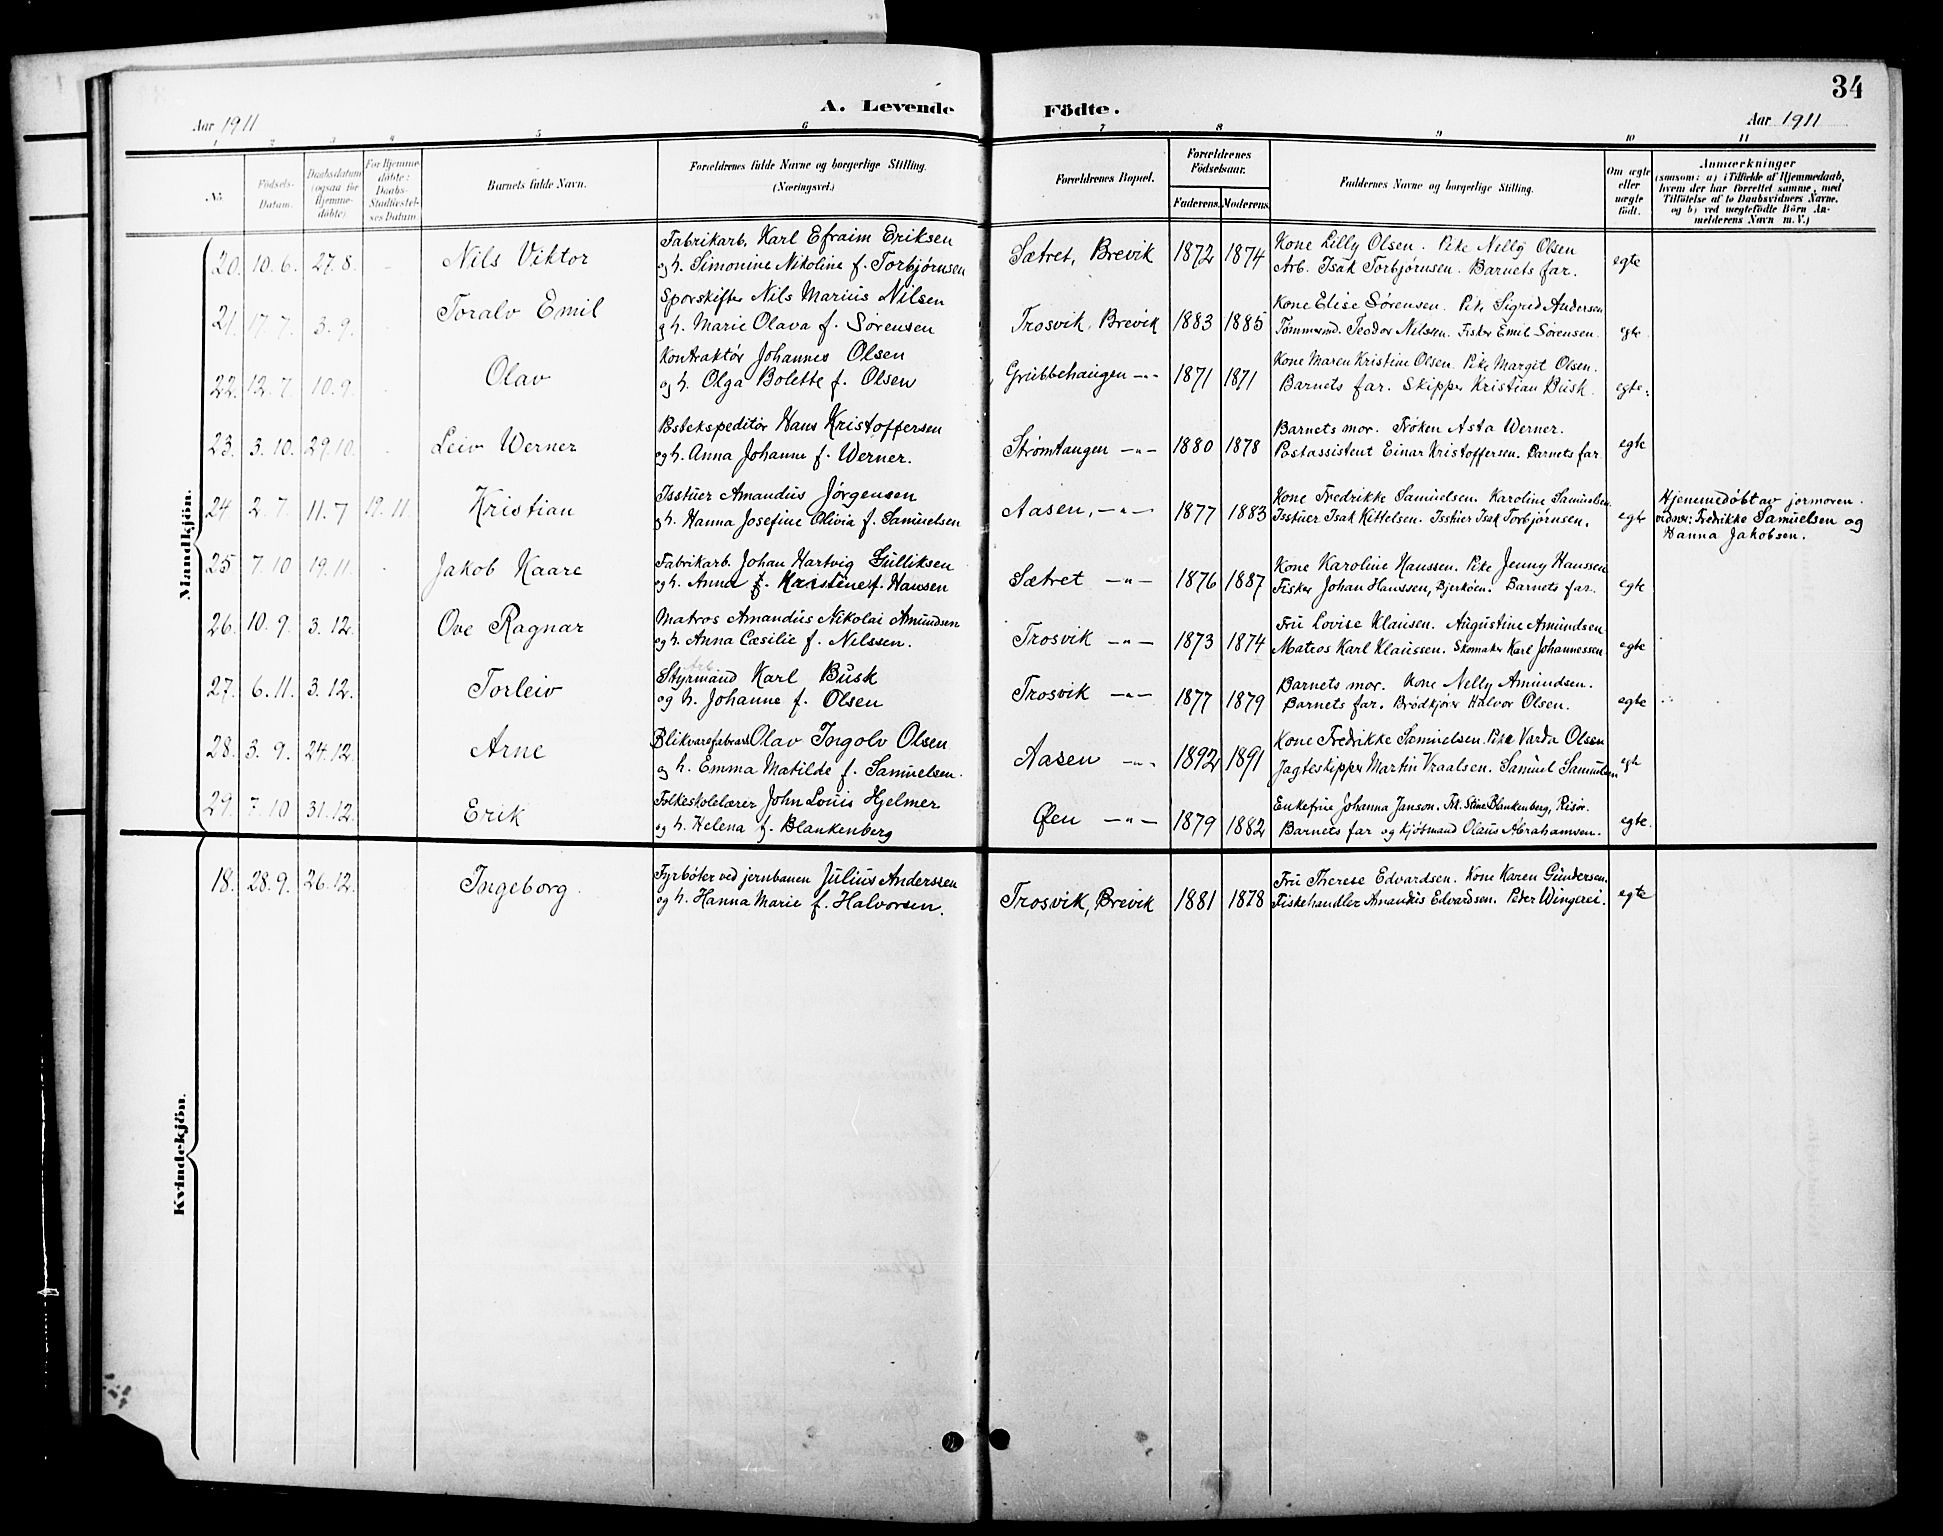 34
A. Levende Födte.
Aar 1911
Aar 1911
1 2 3 4 5 6 7 8 9 10 11
No.
Födsels-Datum.
Daabsdatum (ogsaa för Hjemmedöbte).
For Hjemmedöbte: Daabs-Stadfæstelses Datum.
Barnets fulde Navn.
Forældrenes fulde Navne og borgerlige Stilling. (Næringsvei.)
Forældrenes Bopæl.
Forældrenes Födselsaar.
Faderens. Moderens.
Faddernes Navne og borgerlige Stilling.
Om ægte eller uægte födt.
Anmærkninger
(saasom: a) i Tilfælde af Hjemmedaab, hvem der har forrettet samme, med Tilföielse af to Daabsvidners Navne, og b) ved uægtefödte Börn Anmelderens Navn m. V.)
Mandkjön.
20. 10.6. 27.8. - Nils Viktor Fabrikarb. Karl Efraim Eriksen Sætret, Brevik 1872 1874 Kone Lilly Olsen. Pike Nelly Olsen egte
og h. Simonine Nikoline f. Torbjørnsen Arb. Isak Torbjørnsen. Barnets far.
21. 17.7. 3.9. Toralv Emil Sporskifter Nils Marius Nilsen Trosvik, Brevik 1883 1885 Kone Elise Sørensen. Pike Sigrid Andersen egte
og h. Marie Olava f. Sørensen Tømmermd. Teodor Nelsen. Fisker Emil Sørensen.
22. 12.7. 10.9. Olav Kontraktør Johannes Olsen Grubbehaugen -"- 1871 1871 Kone Maren Kristine Olsen. Pike Margit Olsen. egte.
og h. Olga Bolette f. Olsen Barnets far. Skipper Kristian Busk.
23. 3.10. 29.10. - Leiv Werner Postekspeditør Hans Kristoffersen Strømtangen -"- 1880 1878 Barnets mor. Frøken Asta Werner. egte
og h. Anna Johanne f. Werner. Postassistent Einar Kristoffersen. Barnets far.
24 2.7. 11.7 19.11 Kristian Isstuer Amandus Jørgensen Aasen, -"- 1877 1883 Kone Fredrikke Samuelsen. Karoline Samuelsen egte Hjemmedøbt av jormoren.
og h. Hanna Josefine Olivia f. Samuelsen Isstuer Isak Kittelsen. Isstuer Isak Torbjørnsen. vidner: Fredrikke Samuelsen og
Hanna Jakobsen.
25 7.10 19.11. - Jakob Kaare Fabrikarb. Johan Hartvig Gulliksen Sætret -"- 1876 1887 Kone Karoline Hanssen. Pike Jenny Hanssen egte
og h. Anna Kristine f. Hansen Fisker Johan Hanssen, Bjerkøen. Barnets far.
26. 10.9. 3.12. Ove Ragnar Matros Amandus Nikolai Amundsen Trosvik -"- 1873 1874 Fru Lovise Klausen. Augustine Amundsen egte
og h. Anna Cæsilie f. Nelssen. Matros Karl Klaussen. Skomaker Karl Johannessen
27. 6.11. 3.12. Torleiv Styrmand Karl Busk Trosvik -"- 1877 1879 Barnets mor. Kone Nelly Amundsen. egte
Arb.
og h. Johanne f. Olsen Barnets far. Brødkjører Halvor Olsen.
28. 3.9. 24.12. Arne Blikvarefabrarb. Olav Ingolv Olsen Aasen -"- 1892 1891 Kone Fredrikke Samuelsen. Pike Varda Olsen egte
og h. Emma Matilde f. Samuelsen. Jagteskipper Martin Vraalsen. Samuel Samuelsen
29. 7.10 31.12. Erik Folkeskolelærer John Louis Hjelmer Øen -"- 1879 1882 Enkefrue Johanna Janson. Frk. Stine Blankenberg, Risør. egte.
og h. Helena f. Blankenberg Barnets far og kjøbmand Olaus Abrahamsen.
Kvindekjön.
18. 28.9. 26.12. Ingeborg. Fyrbøter ved jernbanen Julius Anderssen Trosvik, Brevik 1881 1878 Fru Therese Edvardsen. Kone Karen Gundersen. egte
og h. Hanna Marie f. Halvorsen. Fiskehandler Amandus Edvardsen. Peder Wingerei.